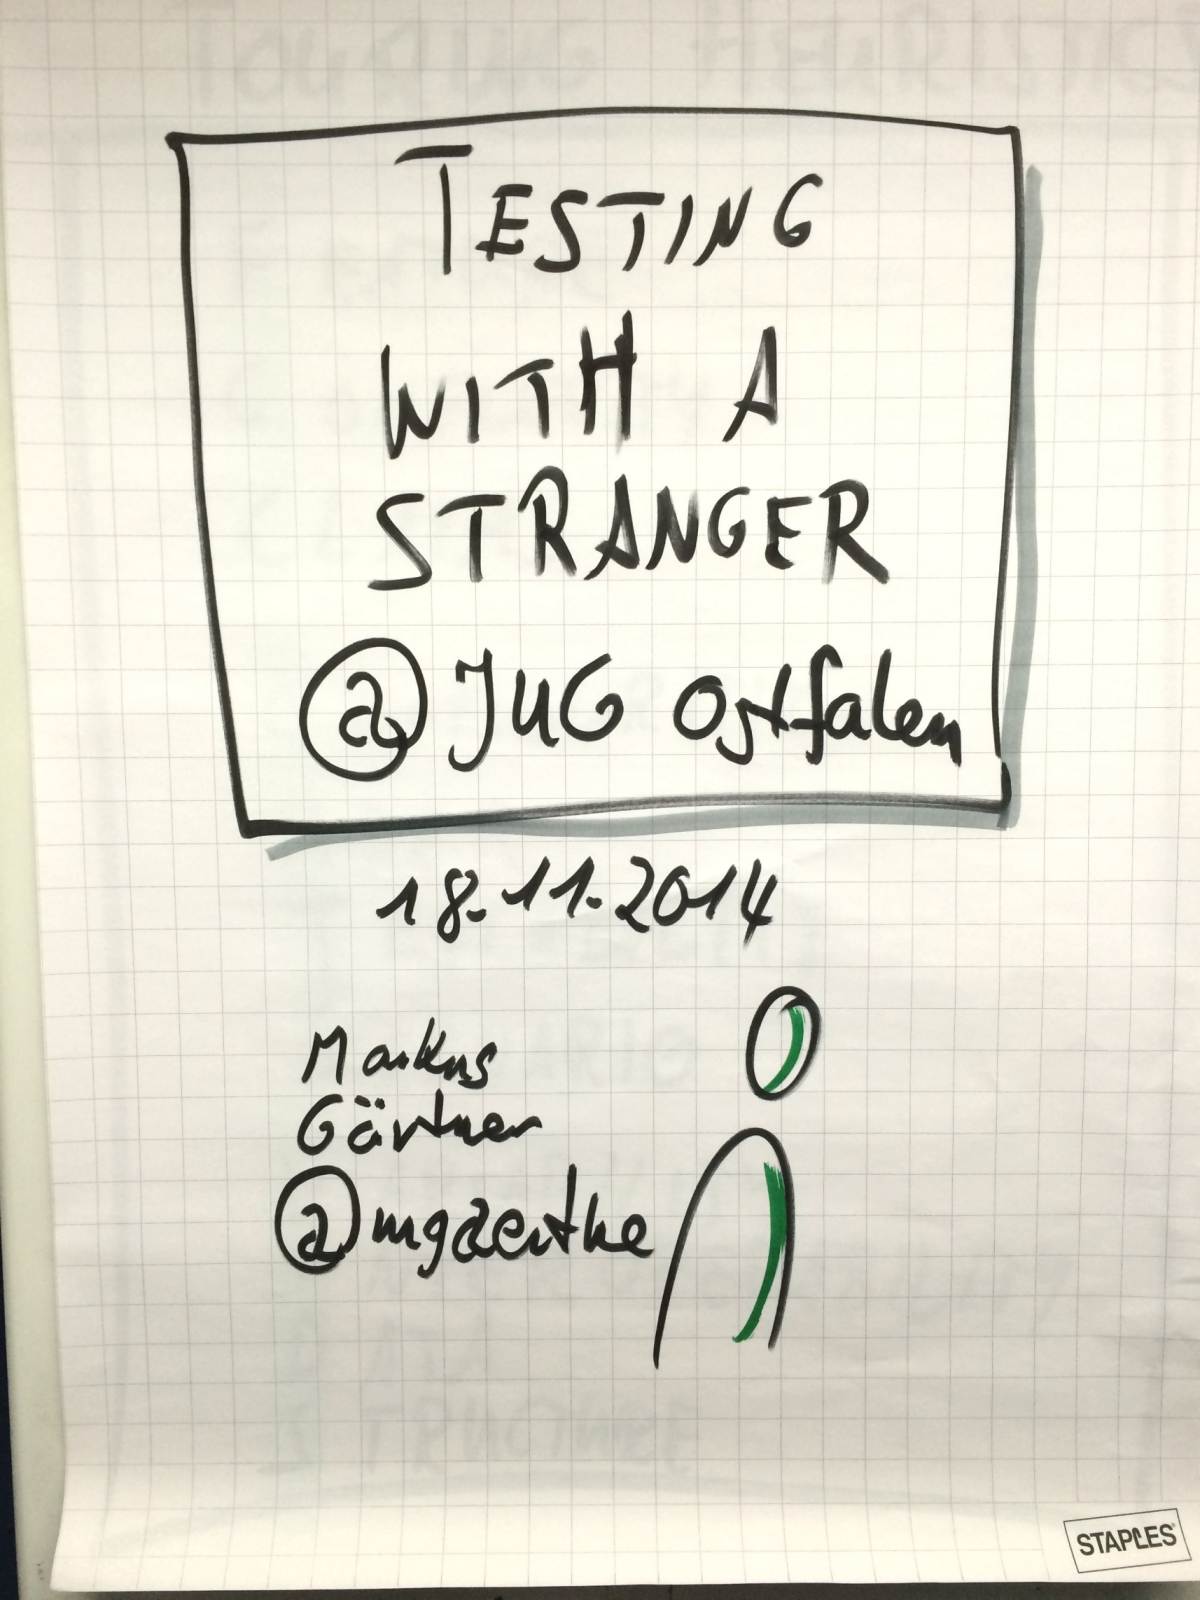 TESTING
WITH A
STRANGER
@JUG Ostfalen
18.11.2014
Markus
Gärtner
@mgaertne
STAPLES